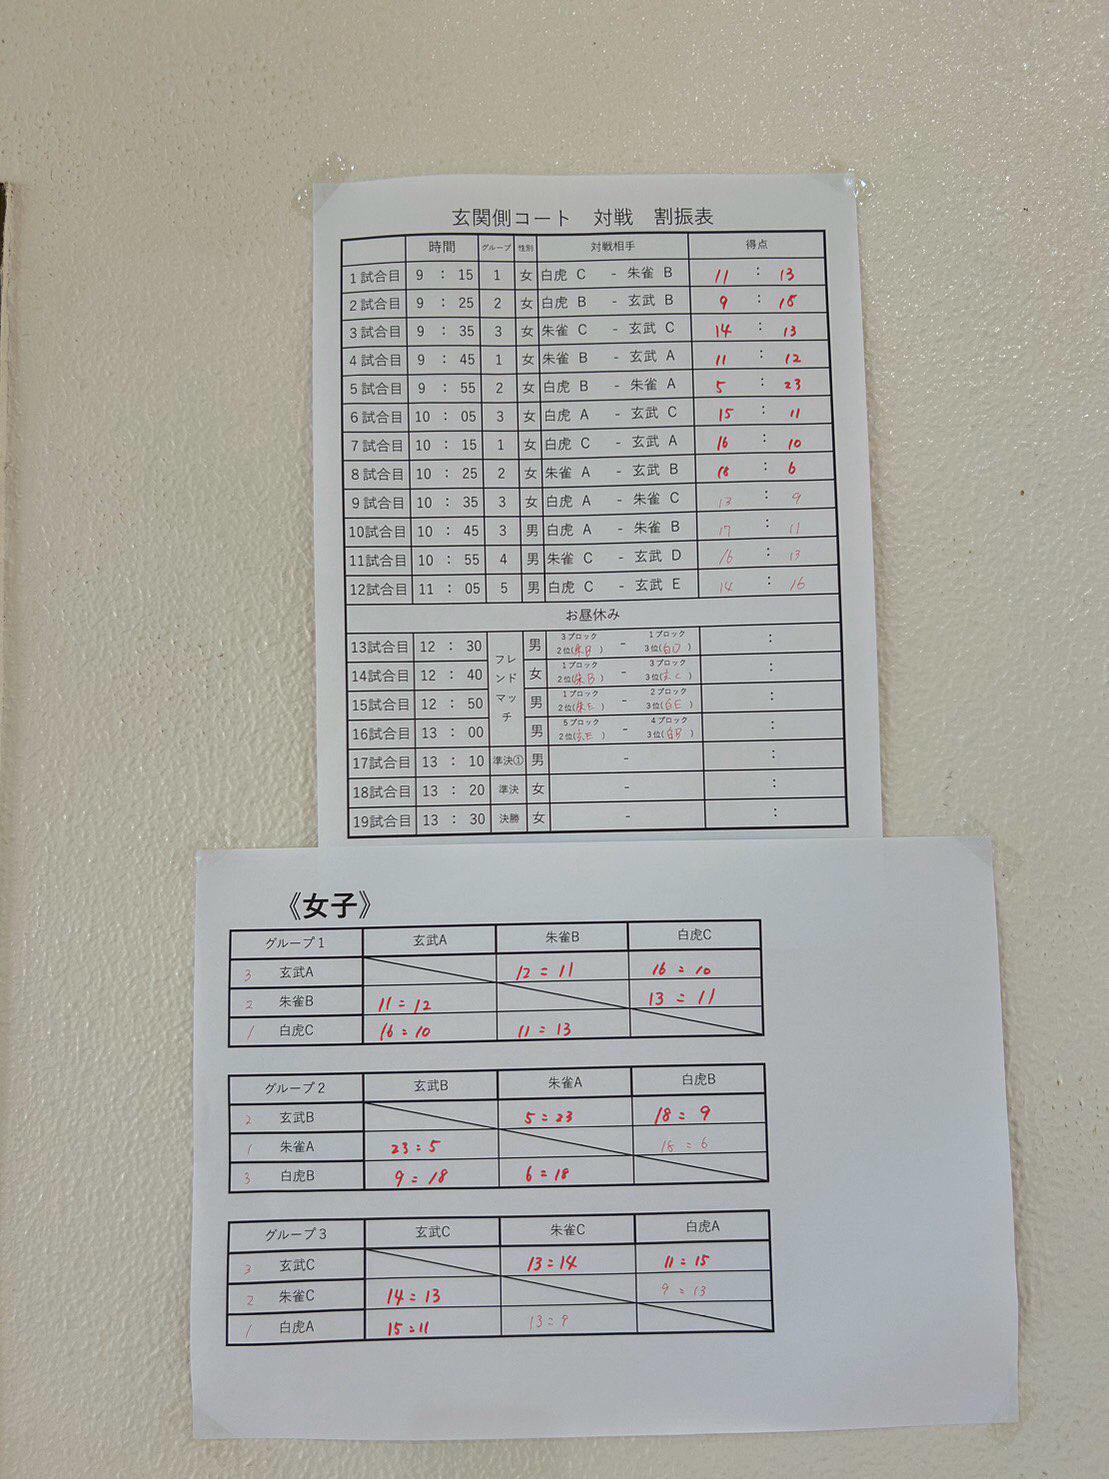 玄関側コート 対戦 割振表
時間 グループ 性別 対戦相手 得点
1試合目 9 : 15 1 女 白虎 C - 朱雀 B 11 : 13
2試合目 9 : 25 2 女 白虎 B - 玄武 B 9 : 18
3試合目 9 : 35 3 女 朱雀 C - 玄武 C 14 : 13
4試合目 9 : 45 1 女 朱雀 B - 玄武 A 11 : 12
5試合目 9 : 55 2 女 白虎 B - 朱雀 A 5 : 23
6試合目 10 : 05 3 女 白虎 A - 玄武 C 15 : 11
7試合目 10 : 15 1 女 白虎 C - 玄武 A 16 : 10
8試合目 10 : 25 2 女 朱雀 A - 玄武 B 18 : 6
9試合目 10 : 35 3 女 白虎 A - 朱雀 C 13 : 9
10試合目 10 : 45 3 男 白虎 A - 朱雀 B 17 : 11
11試合目 10 : 55 4 男 朱雀 C - 玄武 D 16 : 13
12試合目 11 : 05 5 男 白虎 C - 玄武 E 14 : 16
お昼休み
フレンドマッチ
13試合目 12 : 30 男 3ブロック 2位(朱B) - 1ブロック 3位(白D) :
14試合目 12 : 40 女 1ブロック 2位(朱B) - 3ブロック 3位(玄C) :
15試合目 12 : 50 男 1ブロック 2位(朱E) - 2ブロック 3位(白E) :
16試合目 13 : 00 男 5ブロック 2位(玄E) - 4ブロック 3位(白B) :
17試合目 13 : 10 準決① 男 - :
18試合目 13 : 20 準決 女 - :
19試合目 13 : 30 決勝 女 - :
《女子》
グループ1 玄武A 朱雀B 白虎C
3 玄武A 12 = 11 16 = 10
2 朱雀B 11 = 12 13 = 11
1 白虎C 16 = 10 11 = 13
グループ2 玄武B 朱雀A 白虎B
2 玄武B 5 = 23 18 = 9
1 朱雀A 23 = 5 18 = 6
3 白虎B 9 = 18 6 = 18
グループ3 玄武C 朱雀C 白虎A
3 玄武C 13 = 14 11 = 15
2 朱雀C 14 = 13 9 = 13
1 白虎A 15 = 11 13 = 9